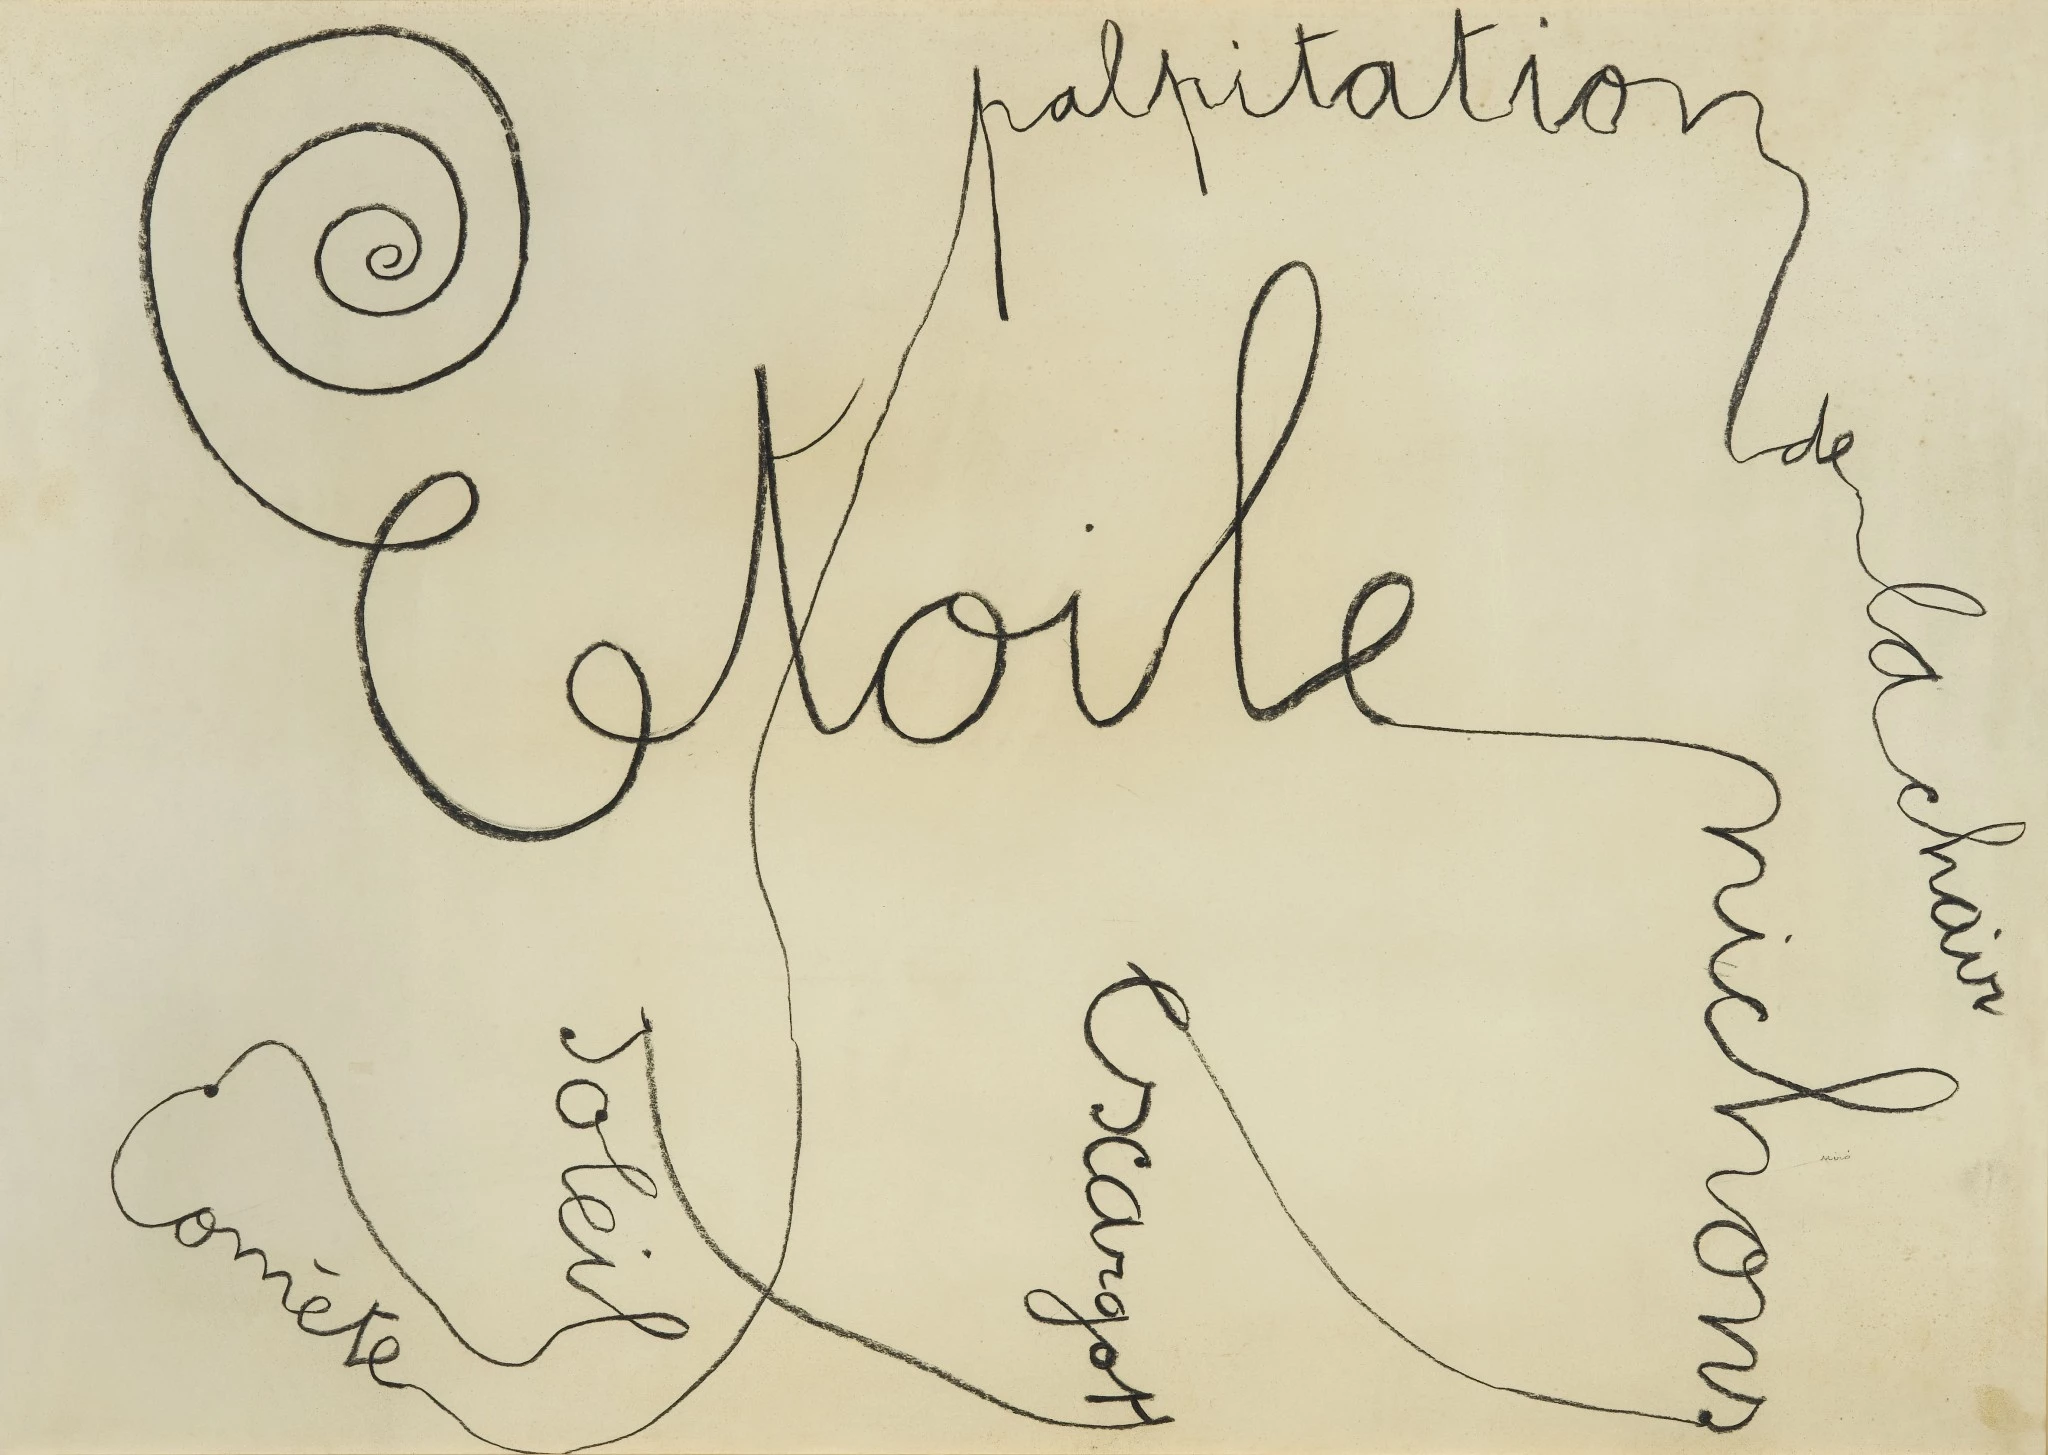 Etoile
nichons
escargot
soleil
Comète
palpitation
de
la chair
miró